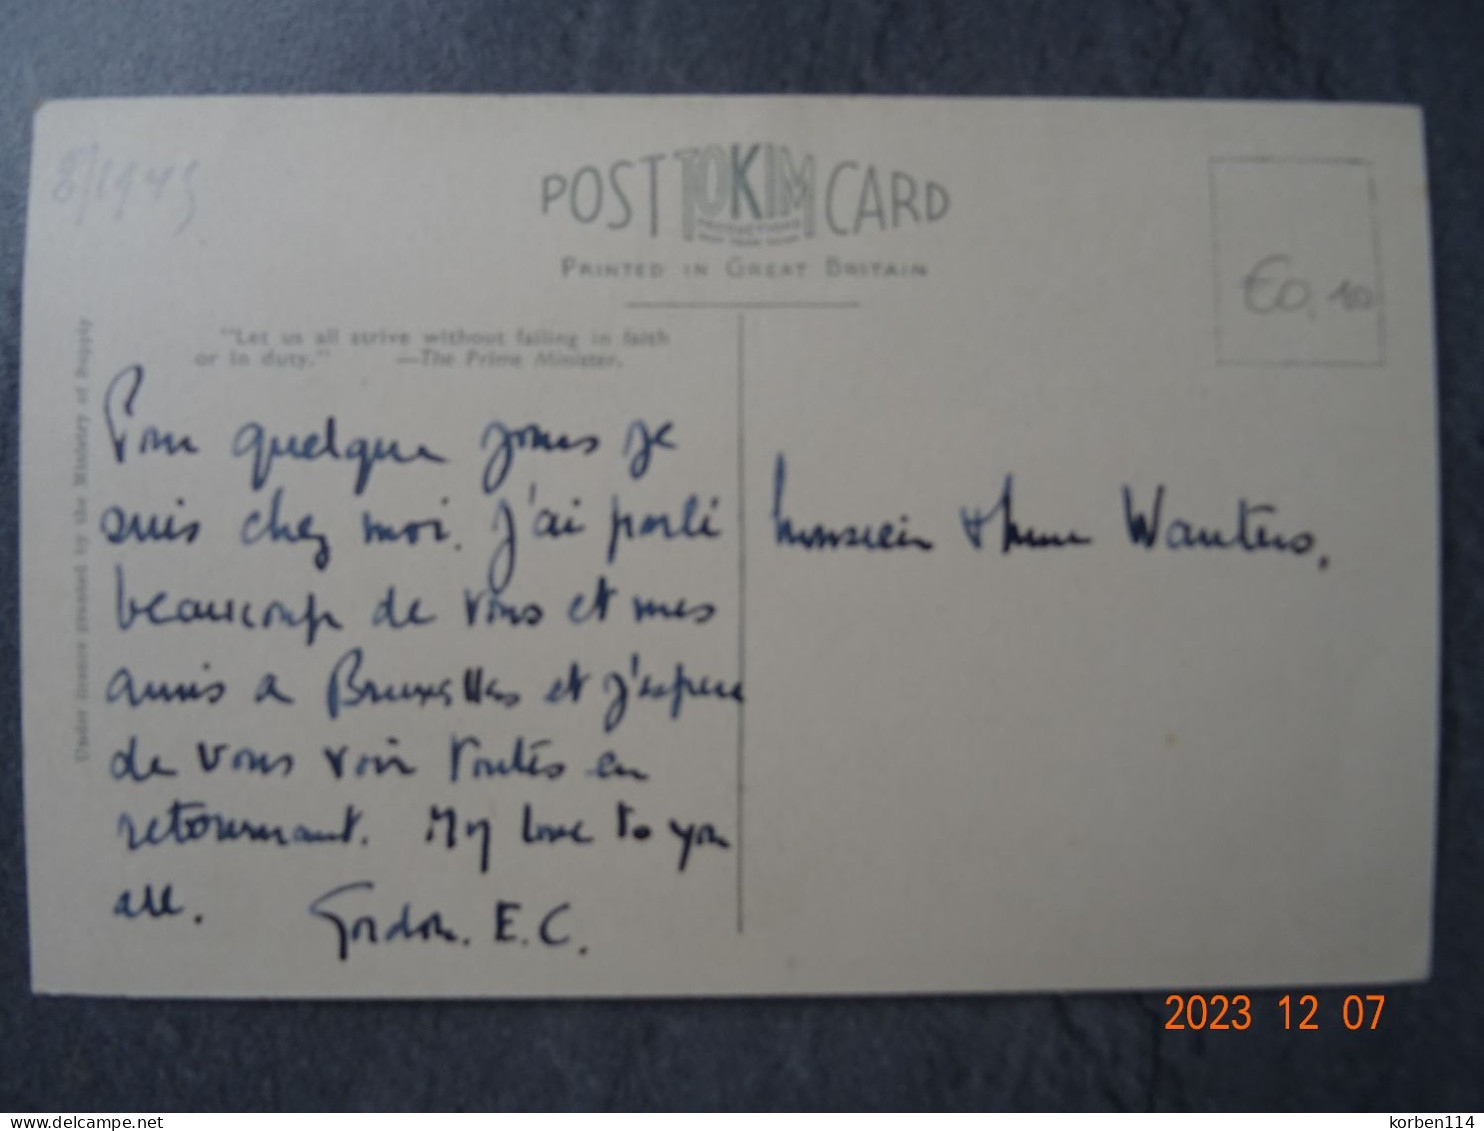 8/1945
POST TOKIM CARD
PRODUCTIONS
PRINTED IN GREAT BRITAIN
€0,10
"Let us all strive without failing in faith
or in duty." —The Prime Minister.
Under licence granted by the Ministry of Supply
Pour quelque jours je
suis chez moi. J'ai parlé
beaucoup de vous et mes
amis a Bruxelles et j'espere
de vous voir toutes en
retournant. My love to you
all. Gordon. E.C.
Monsieur & Mme Wauters.
2023 12 07
korben114